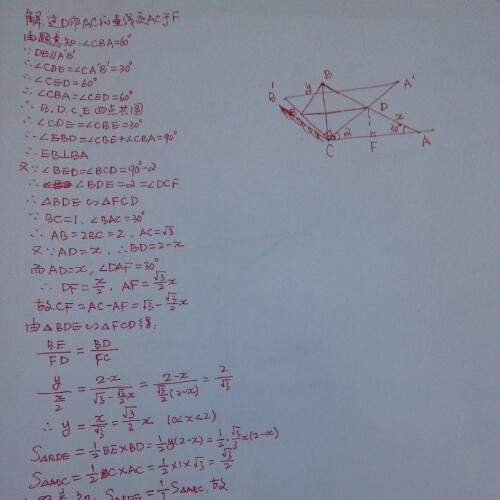 解 过D作AC的垂线交AC于F
由题意知∠CBA=60°
∵DE∥A'B'
∴∠CDE=∠CA'B'=30°
∴∠CED=60°
∴∠CBA=∠CED=60°
∴B.D.C.E四点共圆
∴∠CDE=∠CBE=30°
∴∠EBD=∠CBE+∠CBA=90°
∴EB⊥BA
又∵∠BED=∠BCD=90°-2
∴∠BDE=2=∠DCF
∴△BDE∽△FCD
∵BC=1,∠BAC=30°
∴AB=2BC=2, AC=√3
又∵AD=x, ∴BD=2-x
而AD=x,∠DAF=30°
∴DF=x/2, AF=√3/2 x
故CF=AC-AF=√3-√3/2 x
由△BDE∽△FCD得:
BE/FD=BD/FC
y/(x/2)=(2-x)/(√3-√3/2 x)=(2-x)/(√3/2 (2-x))=2/√3
∴y=x/√3=√3/3 x (0<x<2)
S△BDE=1/2 BE×BD=1/2 y(2-x)=1/2·√3/3 x(2-x)
S△ABC=1/2 BC×AC=1/2×1×√3=√3/2
S△BDE=1/3 S△ABC,故
B
A'
B'
y
D
x
E
2
30°
C
F
A